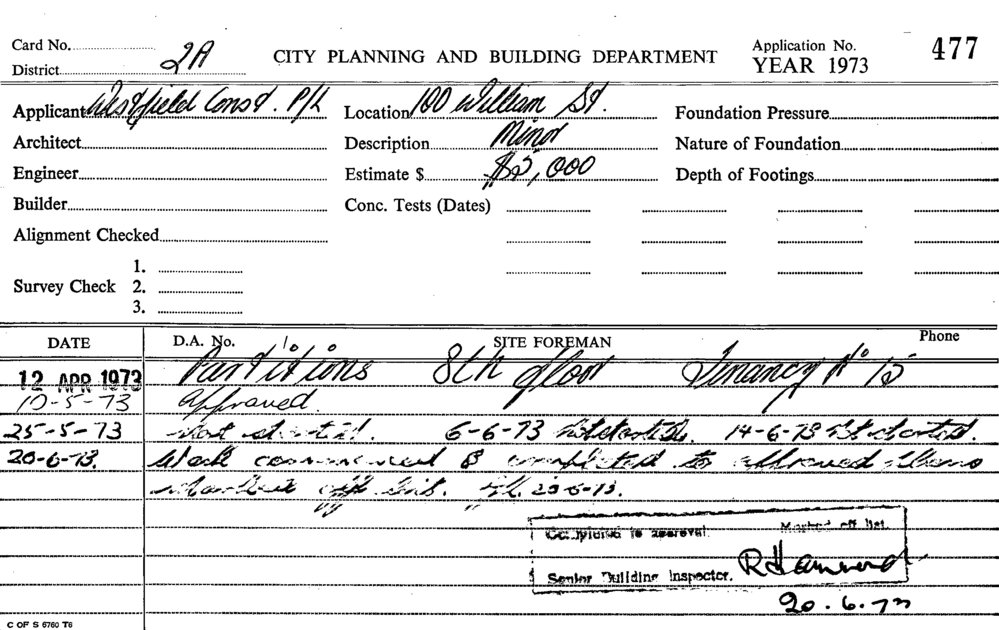 Card No. CITY PLANNING AND BUILDING DEPARTMENT Application No. 477
District 2A YEAR 1973
Applicant Westfield Const. P/L Location 100 William St. Foundation Pressure
Architect Description Minor Nature of Foundation
Engineer Estimate $ $5,000 Depth of Footings
Builder Conc. Tests (Dates)
Alignment Checked
1.
Survey Check 2.
3.
DATE D.A. No. SITE FOREMAN Phone
12 APR 1973 Partitions 8th floor Tenancy No 15
10-5-73 Approved.
25-5-73 Not started. 6-6-73 Not started. 14-6-73 Not started.
20-6-73. Work commenced & completed to approved plans
Marked off list. 20-6-73.
Completed to approval. Marked off list.
Senior Building Inspector. R Hammond
20.6.73
C OF S 6760 T6